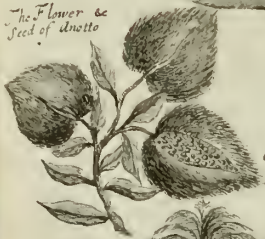 The Flower &
Seed of Anotto